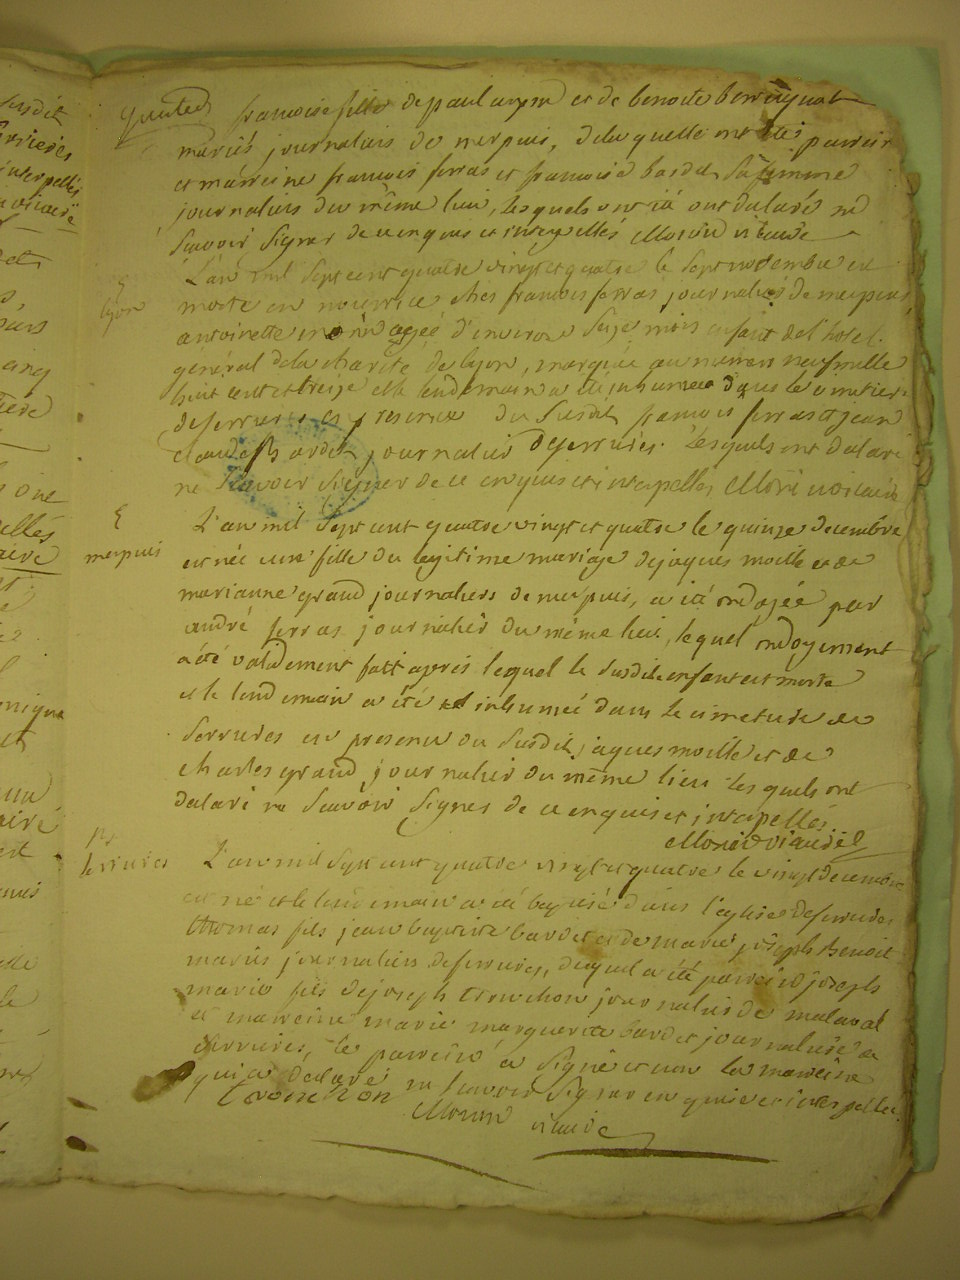 françoise fille de paul et de benoite
mariés journaliers de merpuis, de la quelle ont étés parrein
et marreine francois ferras et francoise bardet sa femme
journaliers du même lieu, lesquels ont déclaré ne
scavoir signer de ce enquis et interpellés Morin vicaire
L'an mil sept cent quatre vingt et quatre le sept novembre est
lyon
morte en nourrice ches francois ferras journalier de merpuis
antoinette agée d'environ seize mois enfant de l'hotel
général de la charité de lyon, marquée au numero neuf mille
huit cent et treize et le lendemain a été inhumée dans le cimetiere
de ferrures en presence du susdit francois ferras et jean
claude bardet journalier de ferrures. lesquels ont declaré
ne scavoir signer de ce enquis et interpellés, Morin vicaire
L'an mil sept cent quatre vingt et quatre le quinze decembre
merpuis
est née une fille du legitime mariage de jaques moille et de
marianne grand journaliers de merpuis, a été ondoyée par
andré ferras journalier du même lieu, lequel ondoyement
a été validement fait apres lequel la susdite enfant est morte
et le lendemain a été inhumée dans le cimetiere de
ferrures en presence du susdit jaques moille et de
charles grand journalier du même lieu lesquels ont
declaré ne scavoir signer de ce enquis et interpellés
Morin vicaire
ferrures
L'an mil sept cent quatre vingt et quatre le vingt decembre
est né et le lendemain a été baptisé dans l'eglise de ferrures
thomas fils jean baptiste bardet et de marie joseph Benoit
mariés journaliers de ferrures, duquel a été parrein joseph
marie fils de joseph tronchon journalier de malaval
et marreine marie marguerite bardet journaliere de
ferrures, le parrein a signé et non la marreine
qui a declaré ne scavoir signer enquise et interpellée
tronchon
Morin vicaire